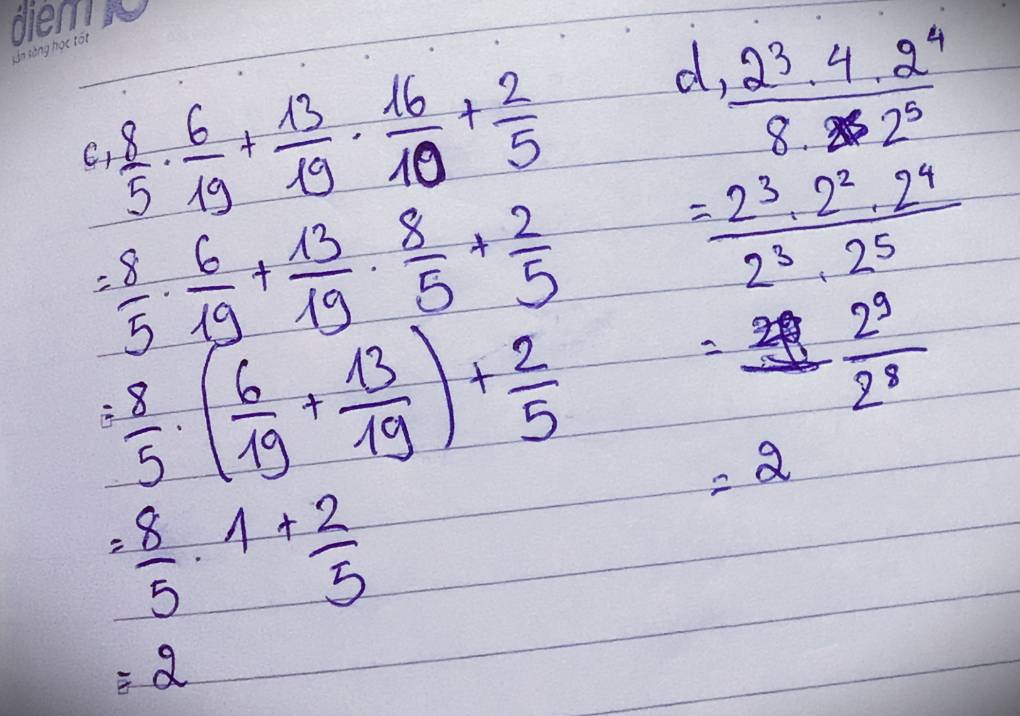 điểm 10
sẵn sàng học tốt
c, 8/5 . 6/19 + 13/19 . 16/10 + 2/5
= 8/5 . 6/19 + 13/19 . 8/5 + 2/5
= 8/5 . (6/19 + 13/19) + 2/5
= 8/5 . 1 + 2/5
= 2
d, 2³ . 4 . 2⁴ / 8 . 2⁵
= 2³ . 2² . 2⁴ / 2³ . 2⁵
= 2⁹ / 2⁸
= 2